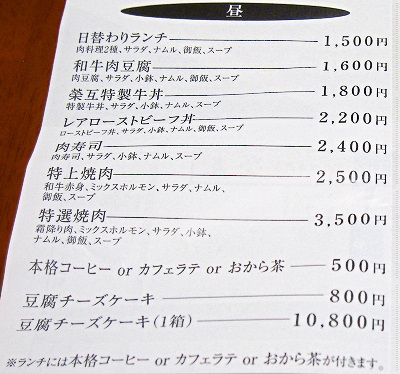 昼
日替わりランチ 1,500円
肉料理2種、サラダ、ナムル、御飯、スープ
和牛肉豆腐 1,600円
肉豆腐、サラダ、小鉢、ナムル、御飯、スープ
榮互特製牛丼 1,800円
特製牛丼、サラダ、小鉢、ナムル、スープ
レアローストビーフ丼 2,200円
ローストビーフ丼、サラダ、小鉢、ナムル、御飯、スープ
肉寿司 2,400円
肉寿司、サラダ、小鉢、ナムル、スープ
特上焼肉 2,500円
和牛赤身、ミックスホルモン、サラダ、ナムル、
御飯、スープ
特選焼肉 3,500円
霜降り肉、ミックスホルモン、サラダ、小鉢、
ナムル、御飯、スープ
本格コーヒー or カフェラテ or おから茶 500円
豆腐チーズケーキ 800円
豆腐チーズケーキ(1箱) 10,800円
※ランチには本格コーヒー or カフェラテ or おから茶が付きます。